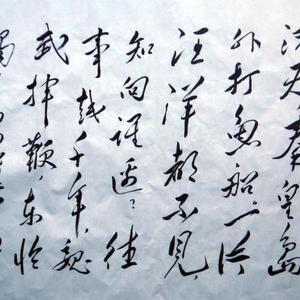 滔天秦皇島
外打魚船.一片
汪洋都不見,
知向誰邊?往
事越千年,魏
武揮鞭,东临